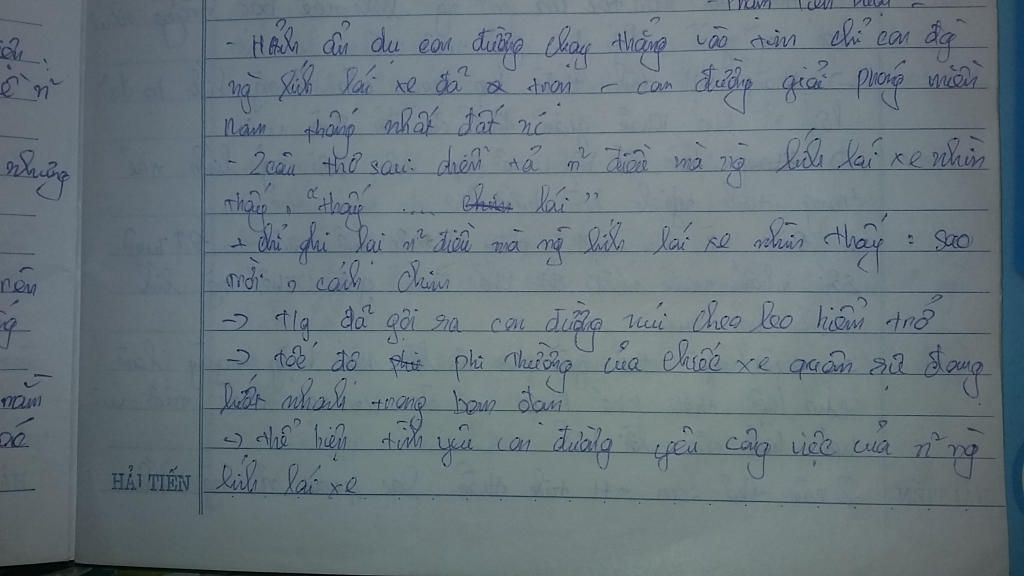 - Hình ẩn dụ con đường chạy thẳng vào tim chỉ con đg
ng lính lái xe đã trọn - con đường giải phóng miền
Nam thống nhất đất nc
- 2 câu thơ sau: diễn tả n² điều mà ng lính lái xe nhìn
thấy, "thấy ... lái"
+ chỉ ghi lại n² điều mà ng lính lái xe nhìn thấy: sao
trời, cánh chim
-> t/g đã gợi ra con đường núi cheo leo hiểm trở
-> tốc độ phi thường của chiếc xe quân sự đang
lướt nhanh trong bom đạn
-> thể hiện tình yêu con đường yêu công việc của n² ng
lính lái xe
HẢI TIẾN
những
nắm